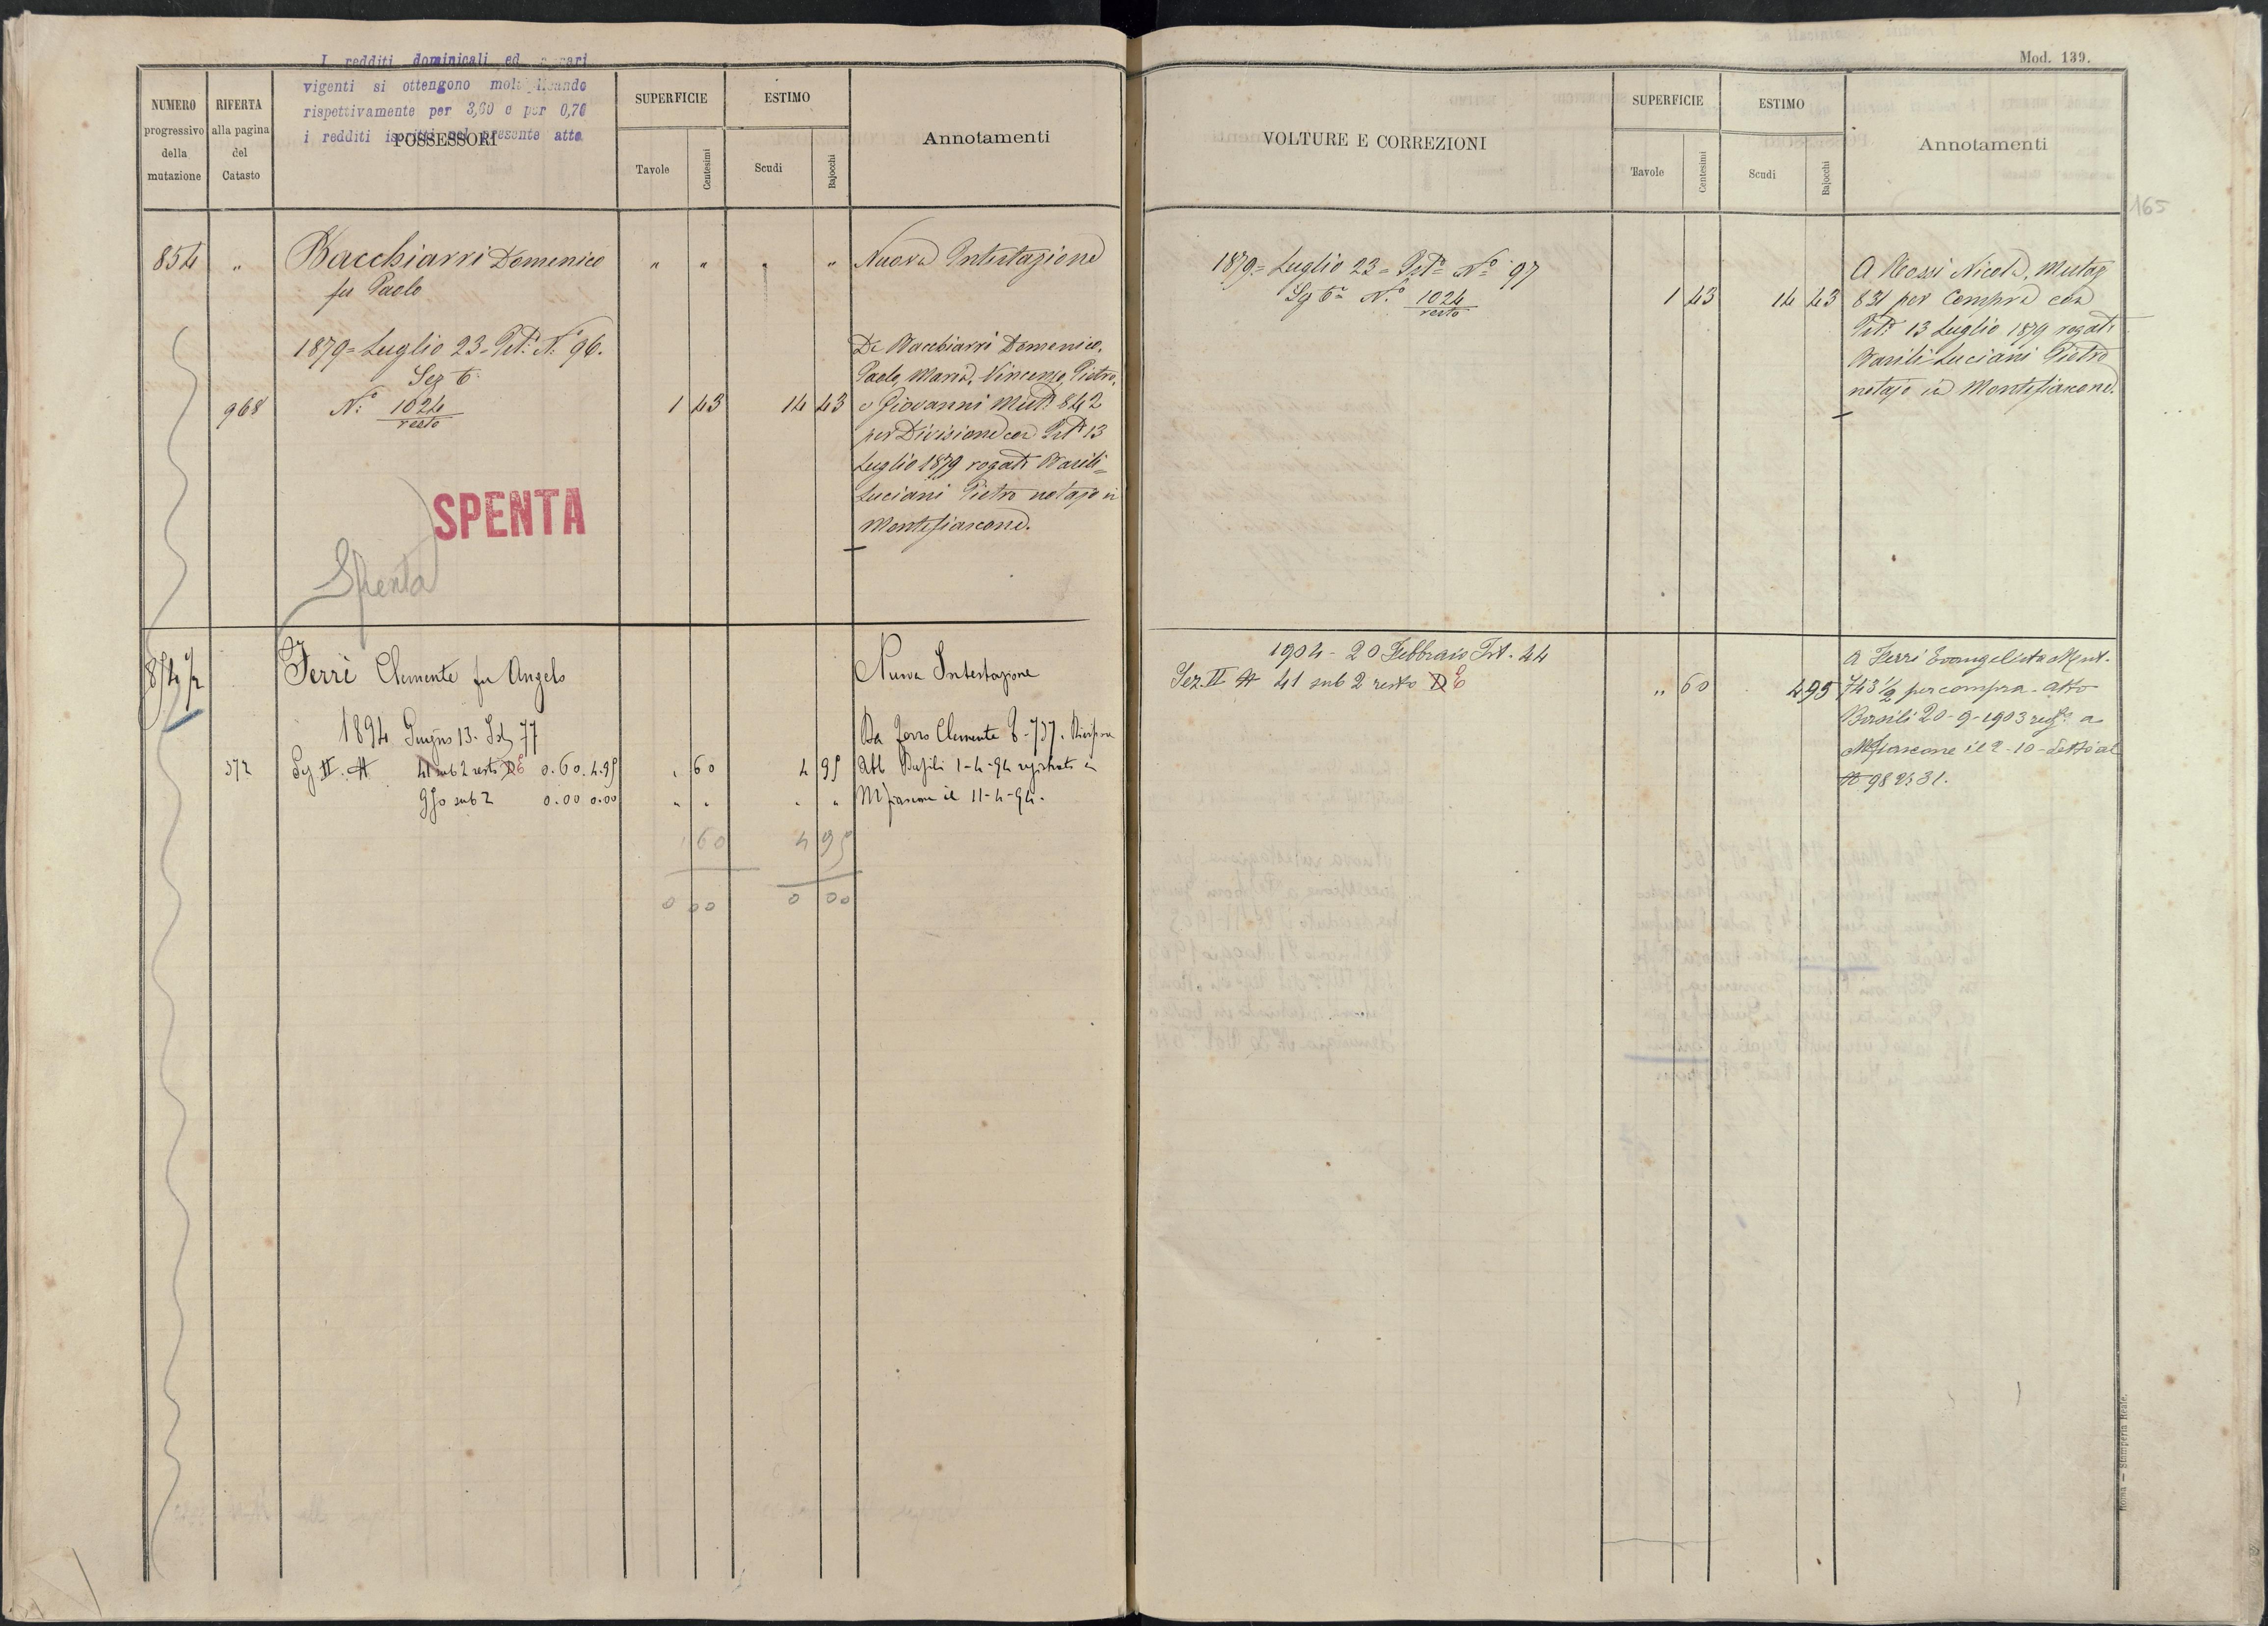 I redditi dominicali ed
vigenti si ottengono
rispettivamente per 3,60 e per 0,70
i redditi iscritti nel presente atto
NUMERO
progressivo
della
mutazione
RIFERTA
alla pagina
del
Catasto
POSSESSORI
SUPERFICIE
Tavole
Centesimi
ESTIMO
Scudi
Bajocchi
Annotamenti
854 " Bacchiarri Domenico " " " " Nuova Intestazione
fu Paolo
1879 = Luglio 23 = Pet. N.° 96.
Sez 6.
968 N.° 1024 resto 1 43 14 43
Da Bacchiarri Domenico,
Paolo, Maria, Vincenzo, Pietro,
e Giovanni Mut. 842
per Divisione con 13
Luglio 1879 rogati Basili=
Luciani Pietro notajo in
Montefiascone.
SPENTA
Spenta
854 1/2 Ferri Clemente fu Angelo Nuova Intestazione
1894 Giugno 13. 77
372 Sez II. A 41 sub 2 resto D E 0.60.4.95 " 60 4 95
sub 2 0.00 0.00 " " " "
Da Ferri Clemente
Atto Basili 1-4-94 registrato a
Mfiascone il 11-4-94.
60 4 95
0 00 0 00
Mod. 139.
165
VOLTURE E CORREZIONI
SUPERFICIE
Tavole
Centesimi
ESTIMO
Scudi
Bajocchi
Annotamenti
1879 = Luglio 23 = N.° 97
N.° 1024 resto 1 43 14 43
A Rossi Nicola, Mutaz
831 per Compra con
13 Luglio 1879 rogati
Basili Luciani Pietro
notajo in Montefiascone.
1904 - 20 Febbraio 44
Sez. II A 41 sub 2 resto D E " 60 4 95
A Ferri Evangelista Mut.
743 1/2 per compra - Atto
Basili 20-9-1903 a
Mfiascone il 2-10- detto al
Roma — Stamperia Reale.